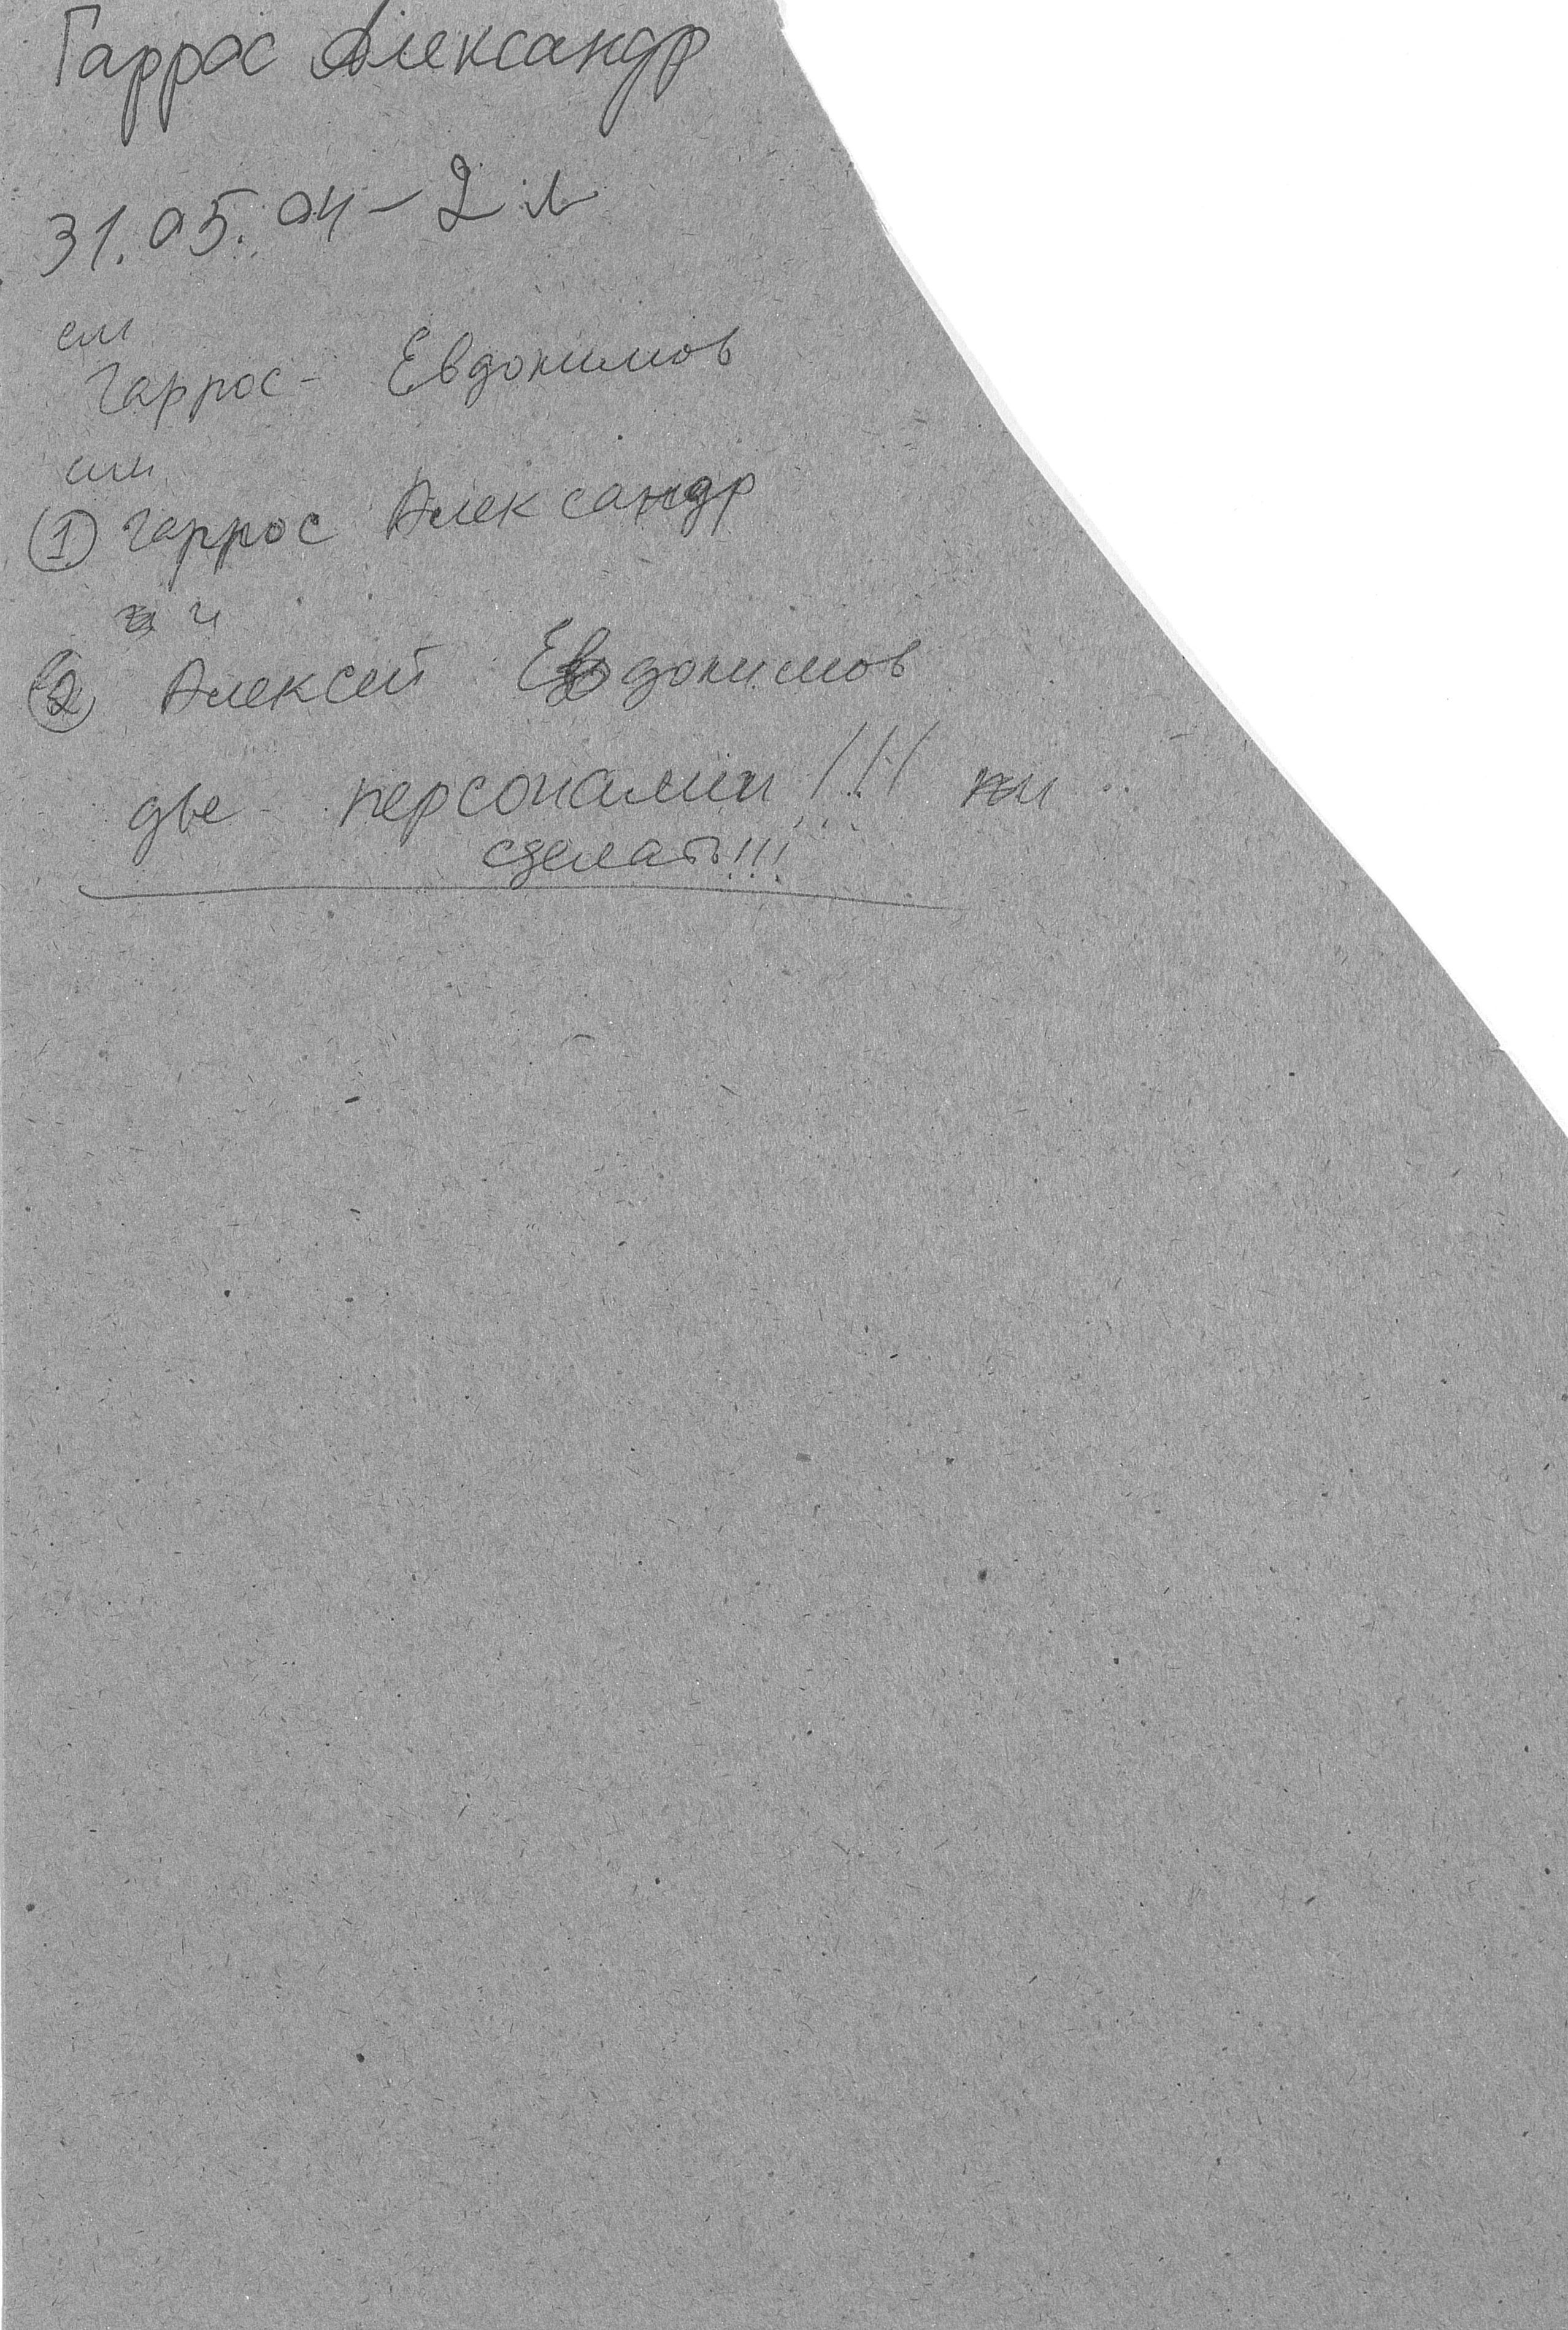 Гаррос Александр
31.05.04 - 2 л
см
Гаррос - Евдокимов
или
① Гаррос Александр
и
② Алексей Евдокимов
две персоналии !!!
сделать!!!